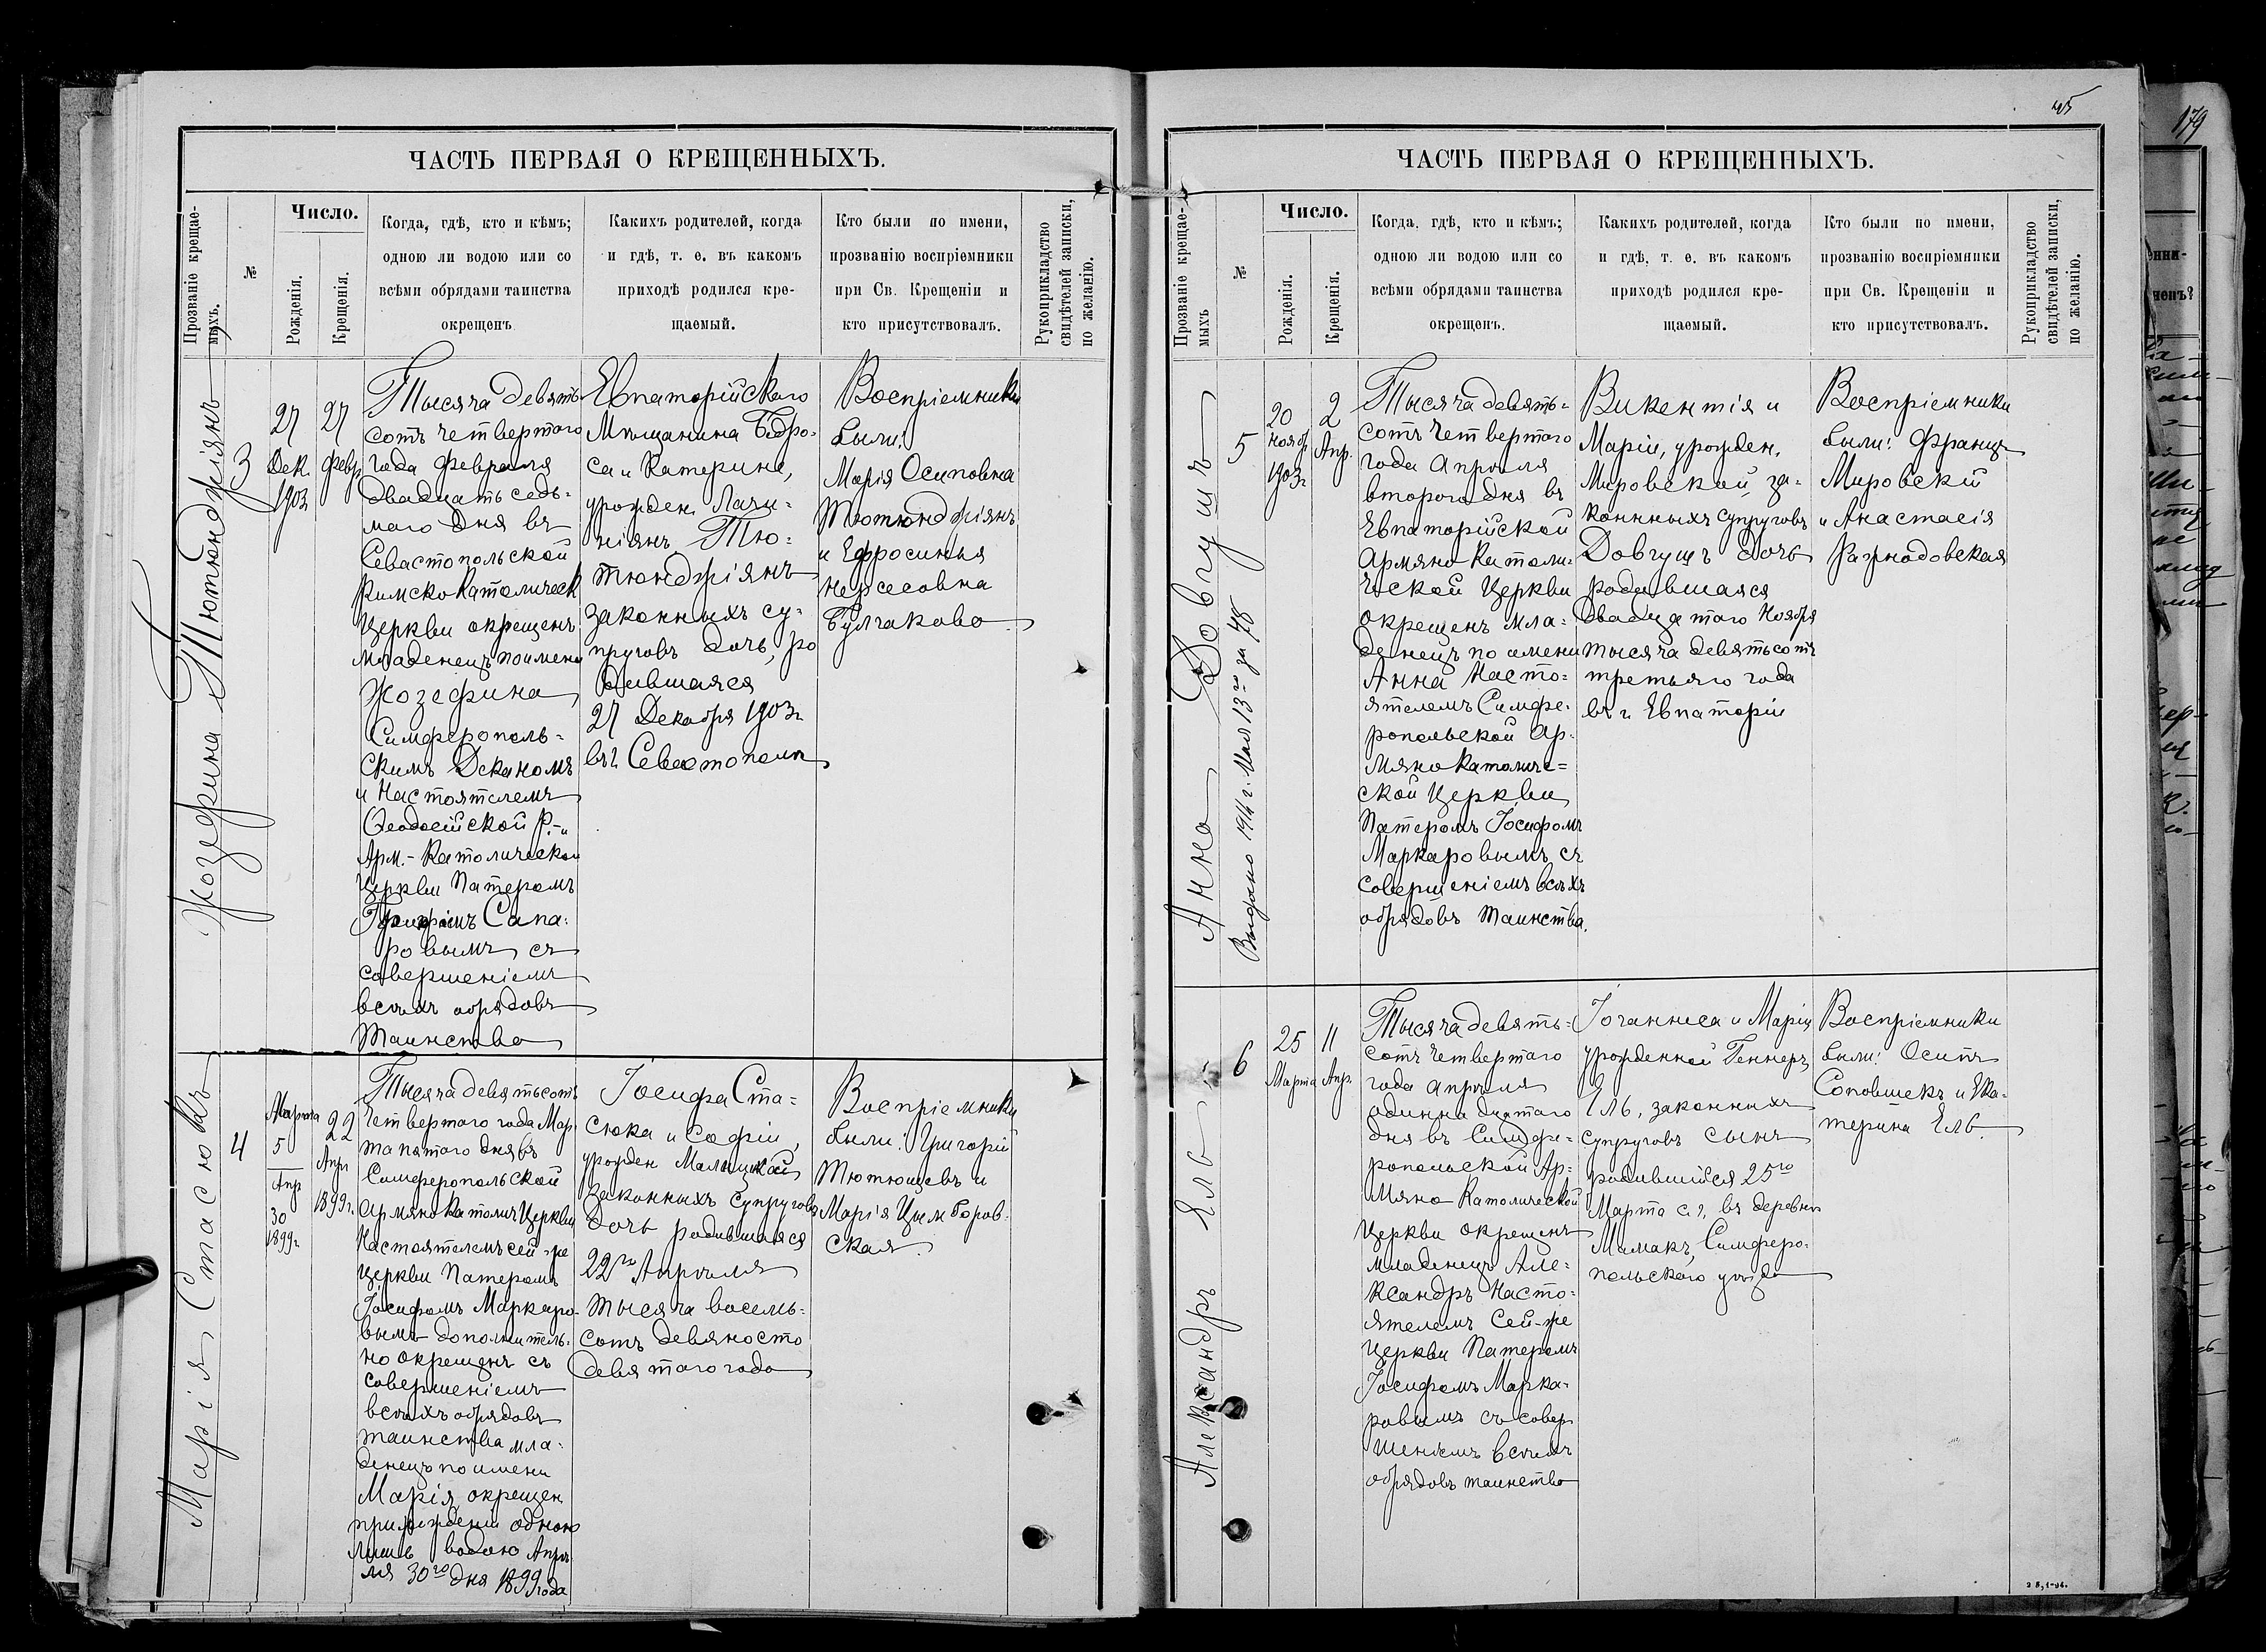 45
179
ЧАСТЬ ПЕРВАЯ О КРЕЩЕННЫХЪ.
Прозваніе крещае-
мыхъ.
№
Число.
Рожденія.
Крещенія.
Когда, гдѣ, кто и кѣмъ;
одною ли водою или со
всѣми обрядами таинства
окрещенъ
Какихъ родителей, когда
и гдѣ, т. е. въ какомъ
приходѣ родился кре-
щаемый.
Кто были по имени,
прозванію воспріемники
при Св. Крещеніи и
кто присутствовалъ.
Рукоприкладство
свидѣтелей записки,
по желанію.
Жозефина Тютюнджіянъ
3
27
Дек.
1903
27
Февр.
Тысяча девять-
сотъ четвертаго
года Февраля
двадцать седь-
маго дня въ
Севастопольской
Римско Католическ
Церкви окрещенъ
младенецъ по имени
Жозефина
Симферополь-
скимъ Деканомъ
и Настоятелемъ
Ѳеодосійской Р.-и
Арм.-Католической
Церкви Патеромъ
Сапа-
ровымъ съ
совершеніемъ
всѣхъ обрядовъ
Таинства
Евпаторійскаго
Мѣщанина Бедро-
са и Катерины,
урожден. Лачи-
ніянъ Тю-
тюнджіянъ
законныхъ су-
пруговъ дочь, ро
дившаяся
27 Декабря 1903 г.
въ г. Севастополѣ
Воспріемники
были:
Марія Осиповна
Тютюнджіянъ
и Ефросинья
Нерсесовна
Булгакова
Марія Стасюкъ
4
Марта
5
Апр
30
1899 г.
22
Апр
1899 г.
Тысяча девятьсотъ
Четвертаго года Мар-
та пятаго дня въ
Симферопольской
Армяно Католич Церкви
Настоятелемъ сей-же
Церкви Патеромъ
Іосифомъ Маркаро-
вымъ дополнитель-
но окрещенъ съ
совершеніемъ
всѣхъ обрядовъ
таинства мла-
денецъ по имени
Марія, окрещен
при рожденіи одною
лишь водою Апрѣ
ля 30го дня 1899 года
Іосифа Ста-
сюка и Софіи,
урожден Малицкой
Законныхъ супруговъ
дочь родившаяся
22го Апрѣля
тысяча восемь-
сотъ девяносто
девятаго года
Воспріемники
были: Григорій
Тютющевъ и
Марія Цымборов-
ская.
ЧАСТЬ ПЕРВАЯ О КРЕЩЕННЫХЪ.
Прозваніе крещае-
мыхъ
№
Число.
Рожденія.
Крещенія.
Когда, гдѣ, кто и кѣмъ;
одною ли водою или со
всѣми обрядами таинства
окрещенъ.
Какихъ родителей, когда
и гдѣ, т. е. въ какомъ
приходѣ родился кре-
щаемый.
Кто были по имени,
прозванію воспріемники
при Св. Крещеніи и
кто присутствовалъ.
Рукоприкладство
свидѣтелей записки,
по желанію.
Анна Довгушъ
Выдано 1914 г. Мая 13го за 78
5
20
Ноябр
1903 г
2
Апр.
Тысяча девять-
сотъ Четвертаго
года Апрѣля
второго дня въ
Евпаторійской
Армяно Католи-
ческой Церкви
окрещенъ мла-
денецъ по имени
Анна Насто-
ятелемъ Симфе-
ропольской Ар-
мяно Католиче-
ской Церкви
Патеромъ Іосифомъ
Маркаровымъ съ
совершеніемъ всѣхъ
обрядовъ Таинства.
Викентія и
Маріи, урожден.
Мировской, за-
конныхъ супруговъ
Довгушъ дочь
родившаяся
двадцатаго Ноября
тысяча девятьсотъ
третьяго года
въ г. Евпаторіи
Воспріемники
были: Францъ
Мировскій
и Анастасія
Александръ Ель
6
25
Марта
11
Апр.
Тысяча девять-
сотъ Четвертаго
года Апрѣля
одиннадцатаго
дня въ Симфе-
ропольской Ар-
мяно Католической
Церкви окрещенъ
младенецъ Але-
ксандръ Насто-
ятелемъ Сей-же
Церкви Патеромъ
Іосифомъ Марка-
ровымъ съ совер
шеніемъ всѣхъ
обрядовъ таинства
Іоганнеса и Маріи
урожденной Геннеръ
Ель, законныхъ
супруговъ сынъ
родившійся 25го
Марта с. г. въ деревни
Мамакъ, Симферо-
польского уѣзда
Воспріемники
были: Осипъ
Соповшекъ и Ека-
терина Ель.
2 Б, 1-94.